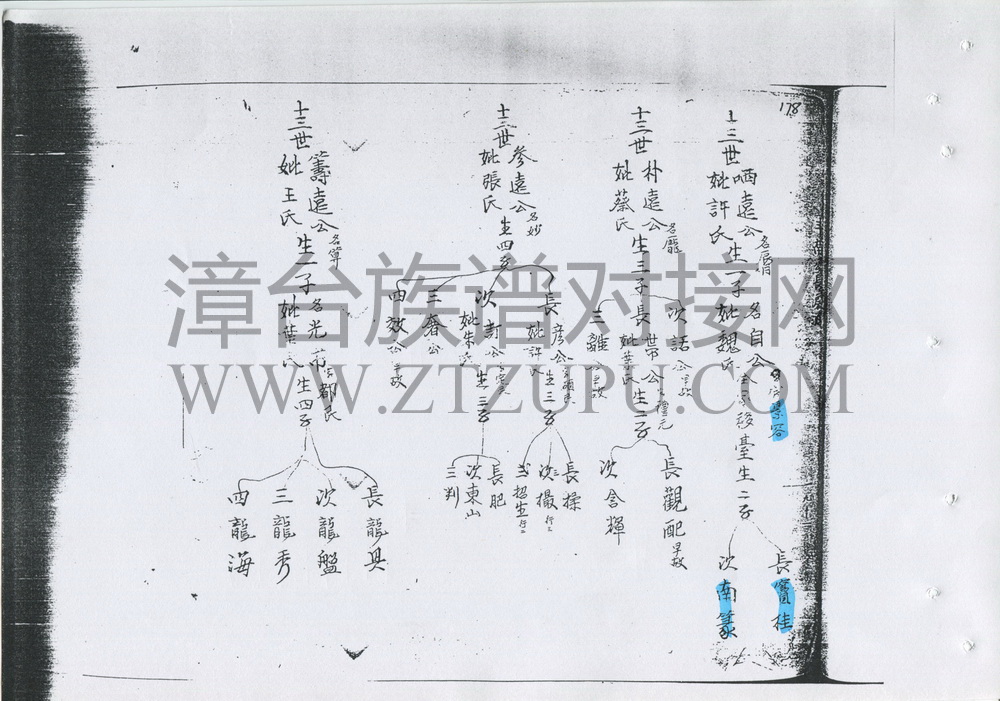 178
十三世 哂遠公
妣許氏 生一子 名自公
妣魏氏
移臺生二子
景容
長寶桂
次南篆
十三世 朴遠公 名龐
妣蔡氏 生三子
長世公
妣葉氏 生二子
次話公
三
長觀配 早故
次含輝
十三世 參遠公 名妙
妣張氏 生四子
長彥公
妣許氏 生三子
次
妣朱氏 生三子
三春公
四效公
長操
次撮
招生
長肥
次東山
三判
十三世 籌遠公 名單
妣王氏 生一子 名光
妣葉氏 生四子
長龍具
次龍盤
三龍秀
四龍海
漳台族谱对接网
WWW.ZTZUPU.COM